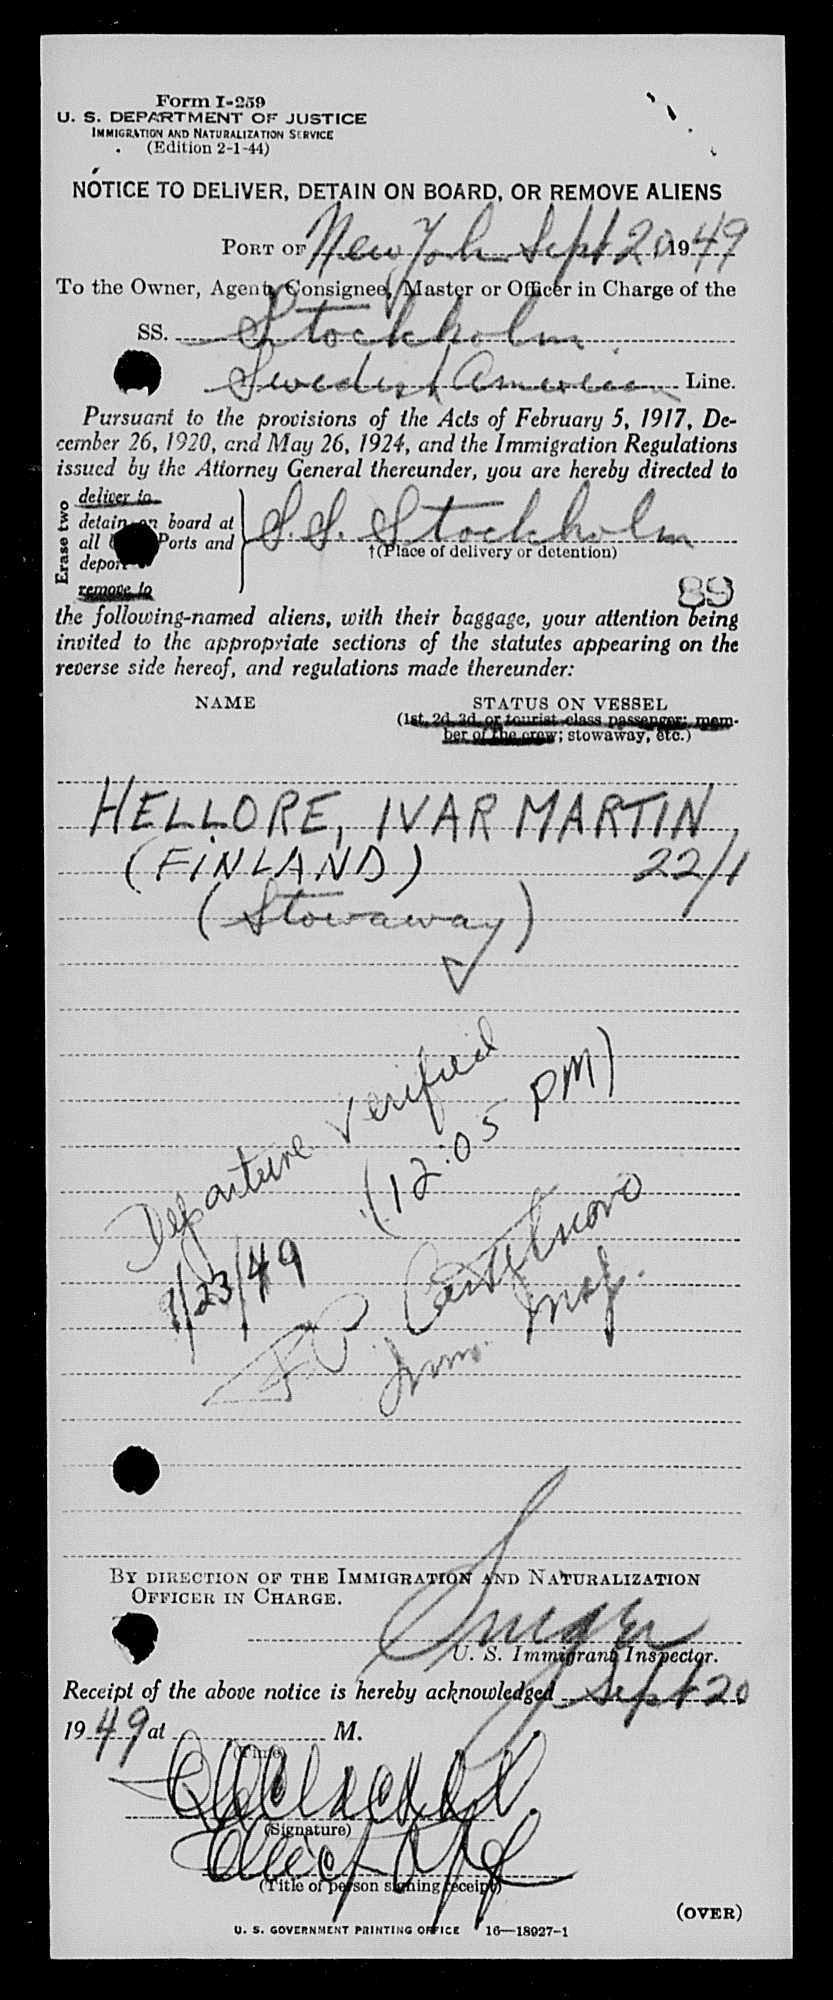 Form I-259
U. S. DEPARTMENT OF JUSTICE
IMMIGRATION AND NATURALIZATION SERVICE
(Edition 2-1-44)
NOTICE TO DELIVER, DETAIN ON BOARD, OR REMOVE ALIENS
PORT OF New York Sept 20 1949
To the Owner, Agent, Consignee, Master or Officer in Charge of the
SS. Stockholm
Swedish American Line.
Pursuant to the provisions of the Acts of February 5, 1917, De-
cember 26, 1920, and May 26, 1924, and the Immigration Regulations
issued by the Attorney General thereunder, you are hereby directed to
Erase two
deliver to
detain on board at
all Ports and
deport
remove to
S.S. Stockholm
†(Place of delivery or detention)
89
the following-named aliens, with their baggage, your attention being
invited to the appropriate sections of the statutes appearing on the
reverse side hereof, and regulations made thereunder:
NAME STATUS ON VESSEL
(1st, 2d, 3d, or tourist class passenger; mem-
ber of the crew; stowaway, etc.)
HELLORE, IVAR MARTIN
(FINLAND) 22/1
(Stowaway)
Departure Verified
9/23/49 (12:05 PM)
Castelnuovo
Imm. Insp.
BY DIRECTION OF THE IMMIGRATION AND NATURALIZATION
OFFICER IN CHARGE.
U. S. Immigrant Inspector.
Receipt of the above notice is hereby acknowledged Sept 20
1949 at M.
(Time)
(Signature)
(Title of person signing receipt)
(OVER)
U. S. GOVERNMENT PRINTING OFFICE 16—18027-1